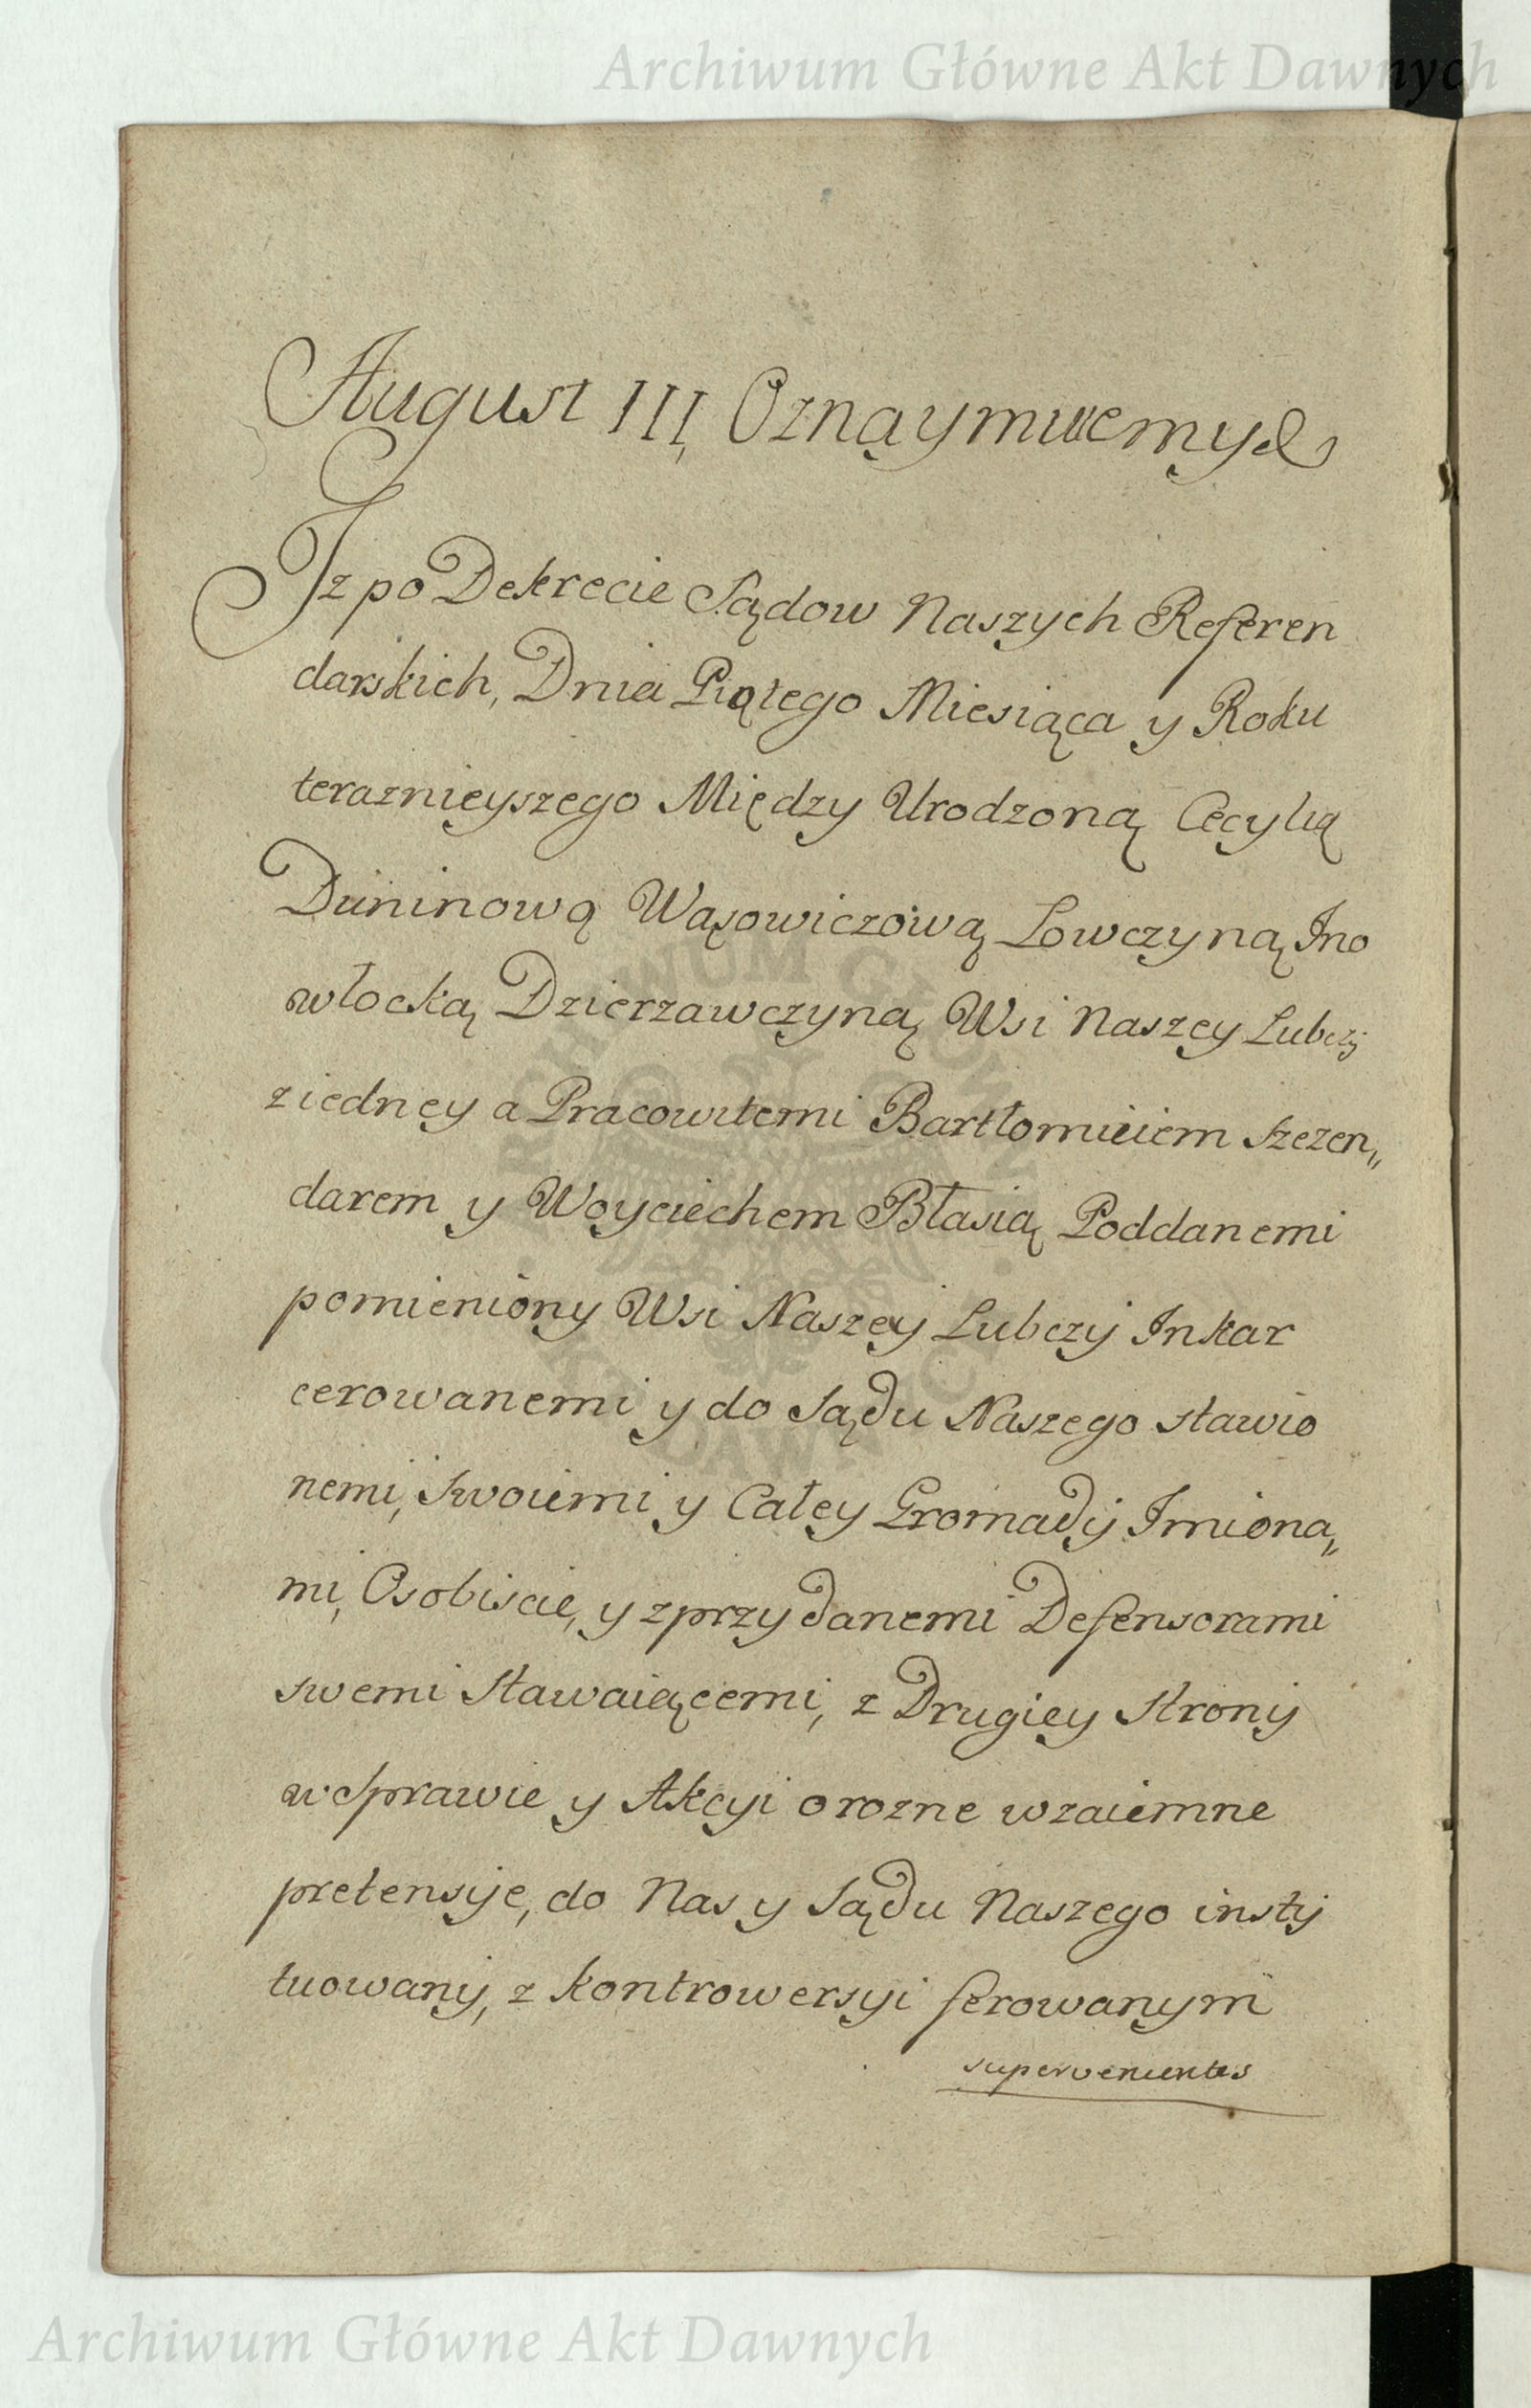 Archiwum Główne Akt Dawnych
August III, Oznąymuiemy &
Iz po Dekrecie Sądow Naszych Referen
darskich, Dnia Piątego Miesiąca y Roku
teraznieyszego Między Urodzoną Cecylią
Duninową Wąsowiczową Lowczyną Ino
włocką Dzierzawczyną Wsi Naszey Lubczy
ziedney a Pracowitemi Bartłomieiem Szczen„
darem y Woyciechem Błasią Poddanemi
pomieniony Wsi Naszey Lubczy Inkar
cerowanemi y do Sądu Naszego stawio
nemi, Swoiemi y Całey Gromady Imiona„
mi, Osobiscie, y zprzydanemi Defensorami
swemi Stawaiącemi, z Drugiey Strony
w Sprawie y Akcyi orozne wzaiemne
pretensye, do Nas y Sądu Naszego insty
tuowany, z kontrowersyi ferowanym
supervenientes
ARCHIWUM GŁÓWNE
AKT DAWNYCH
Archiwum Główne Akt Dawnych